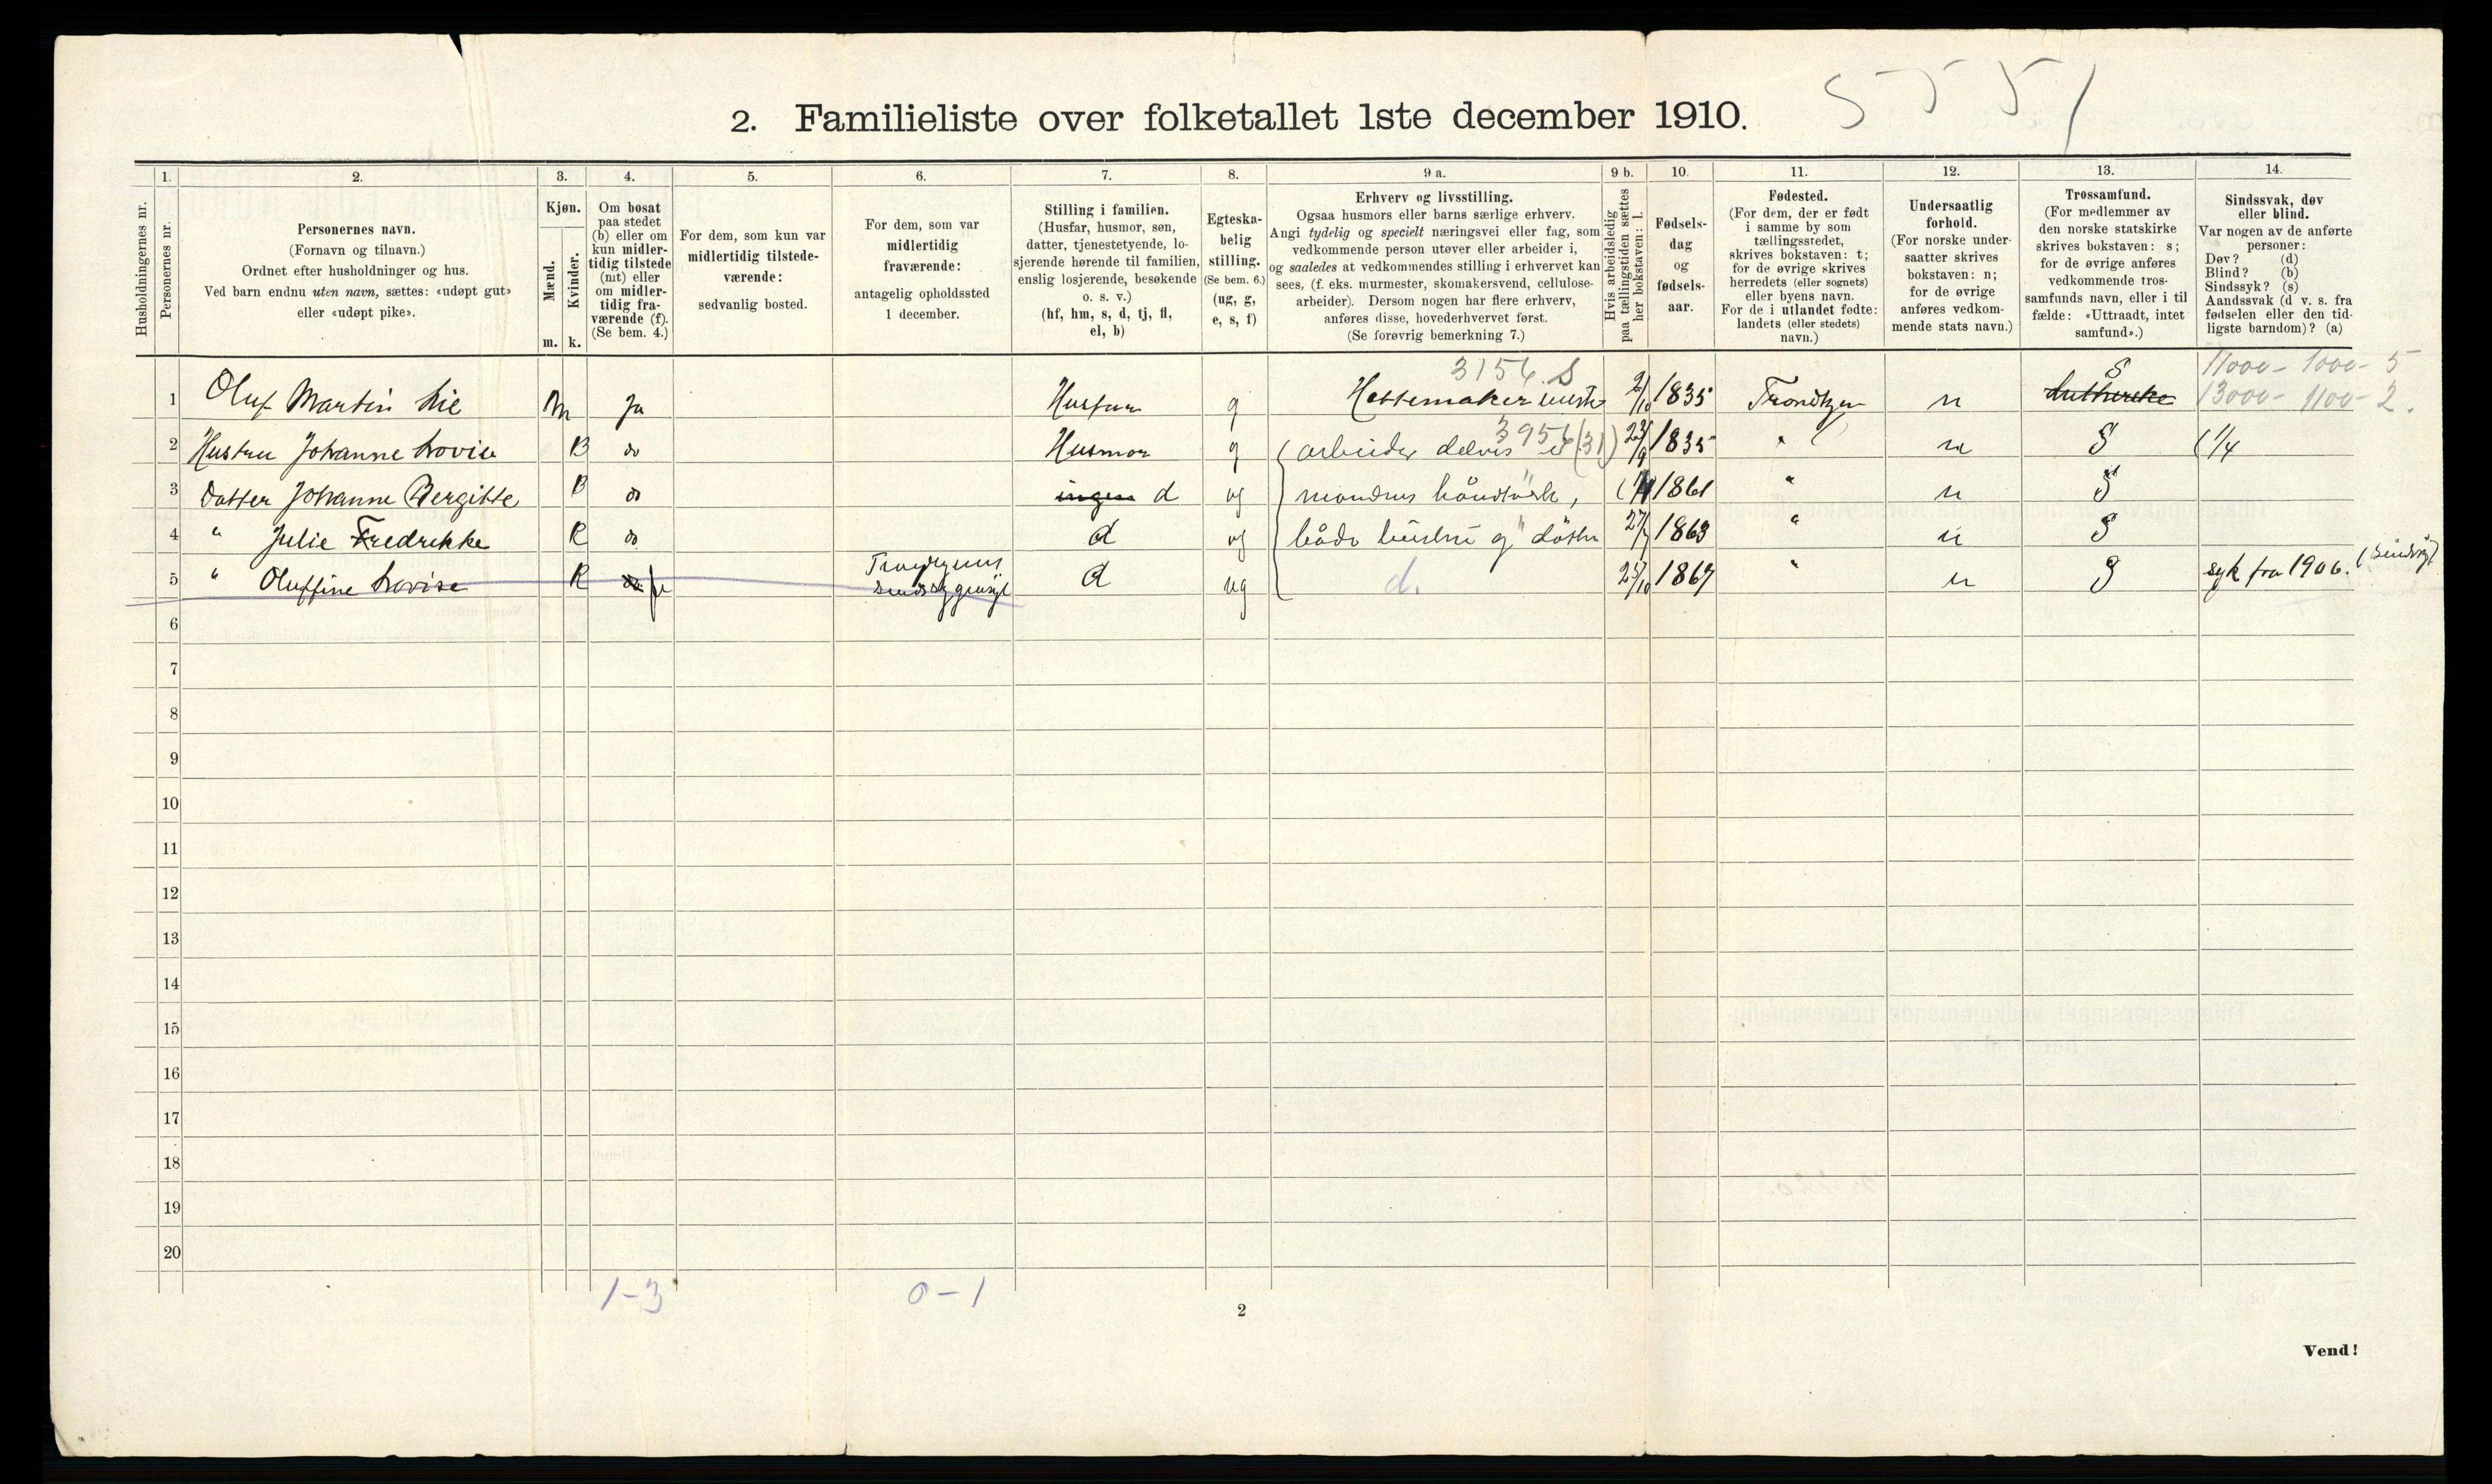 5551
2. Familieliste over folketallet 1ste december 1910.
Husholdningernes nr.
1.
Personernes nr.
2.
Personernes navn.
(Fornavn og tilnavn.)
Ordnet efter husholdninger og hus.
Ved barn endnu uten navn, sættes: «udøpt gut»
eller «udøpt pike».
3.
Kjøn.
Mænd.
Kvinder.
m. k.
4.
Om bosat
paa stedet
(b) eller om
kun midler-
tidig tilstede
(mt) eller
om midler-
tidig fra-
værende (f).
(Se bem. 4.)
5.
For dem, som kun var
midlertidig tilstede-
værende:
sedvanlig bosted.
6.
For dem, som var
midlertidig
fraværende:
antagelig opholdssted
1 december.
7.
Stilling i familien.
(Husfar, husmor, søn,
datter, tjenestetyende, lo-
sjerende hørende til familien,
enslig losjerende, besøkende
o. s. v.)
(hf, hm, s, d, tj, fl,
el, b)
8.
Egteska-
belig
stilling.
(Se bem. 6.)
(ug, g,
e, s, f)
9 a.
Erhverv og livsstilling.
Ogsaa husmors eller barns særlige erhverv.
Angi tydelig og specielt næringsvei eller fag, som
vedkommende person utøver eller arbeider i,
og saaledes at vedkommendes stilling i erhvervet kan
sees, (f. eks. murmester, skomakersvend, cellulose-
arbeider). Dersom nogen har flere erhverv,
anføres disse, hovederhvervet først.
(Se forøvrig bemerkning 7.)
9 b.
Hvis arbeidsledig
paa tællingstiden sættes
her bokstaven: l.
10.
Fødsels-
dag
og
fødsels-
aar.
11.
Fødested.
(For dem, der er født
i samme by som
tællingsstedet,
skrives bokstaven: t;
for de øvrige skrives
herredets (eller sognets)
eller byens navn.
For de i utlandet fødte:
landets (eller stedets)
navn.)
12.
Undersaatlig
forhold.
(For norske under-
saatter skrives
bokstaven: n;
for de øvrige
anføres vedkom-
mende stats navn.)
13.
Trossamfund.
(For medlemmer av
den norske statskirke
skrives bokstaven: s;
for de øvrige anføres
vedkommende tros-
samfunds navn, eller i til
fælde: «Uttraadt, intet
samfund».)
14.
Sindssvak, døv
eller blind.
Var nogen av de anførte
personer:
Døv? (d)
Blind? (b)
Sindssyk? (s)
Aandssvak (d v. s. fra
fødselen eller den tid-
ligste barndom)? (a)
3156. S S 11000 - 1000 - 5
1 Oluf Martin Lie m ja Husfar g Hattemaker 2/10 1835 Trondhjem n Lutherske 13000 - 1100 - 2.
3956 (31)
2 Hustru Johanne Lovise K do Husmor g arbeider delvis i 23/9 1835 " n S (1/4
3 Datter Johanne Bergitte K do ingen d ug mandens håndværk, 1861 " n S
4 " Julie Fredrikke K do d ug både hustru og døtre 27/7 1863 " n S
5 " Oluffine Lovise K do fr Trondhjems d ug d. 25/10 1867 " n S syk fra 1906. (sindssyg)
6
7
8
9
10
11
12
13
14
15
16
17
18
19
20
1-3 0-1
2
Vend!